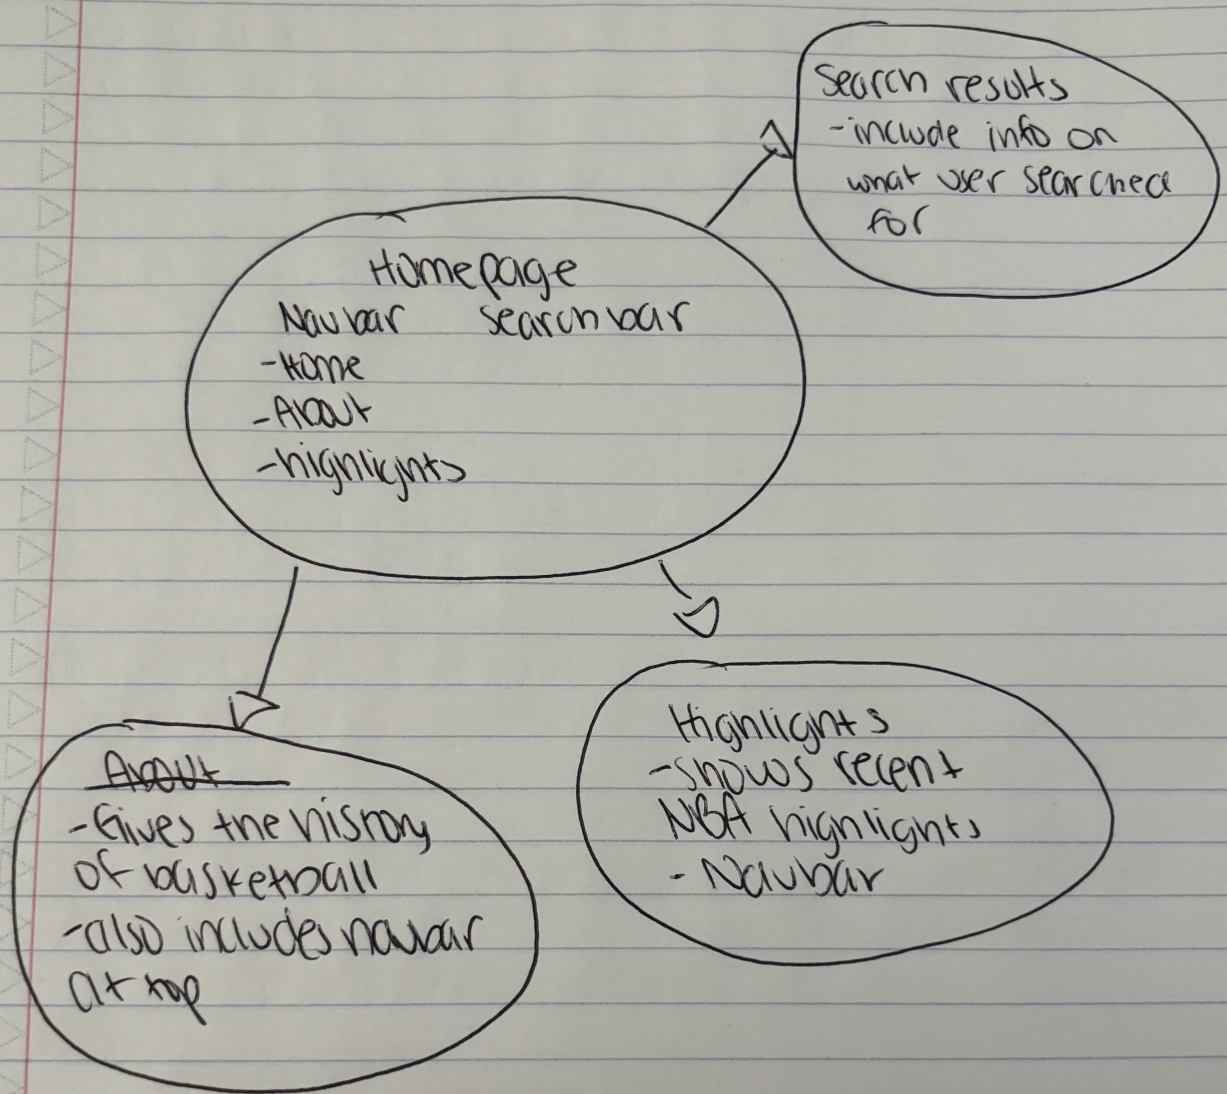 Search results
-include info on
what user searched
for
Homepage
Navbar searchbar
-Home
-About
-highlights
About
-Gives the history
of basketball
-also includes navbar
at top
Highlights
-shows recent
NBA highlights
- Navbar